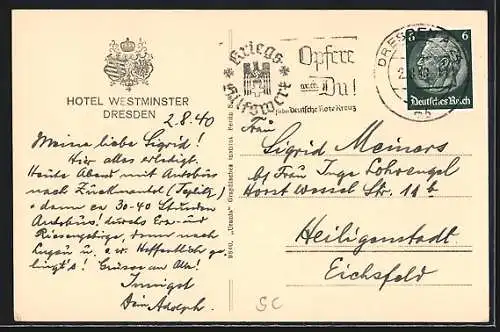 HOTEL WESTMINSTER
DRESDEN
2.8.40
Meine liebe Sigrid!
Hier alles erledigt.
Heute Abend mit Autobus
nach Zuckmantel (Teplitz)
dann ca 30-40 Stunden
Autobus! durchs Erz- und
Riesengebirge, dann nach
u. s. w. Hoffentlich ge-
lingt's! Grüsse an Alle!
Innigst
Dein Adolph.
Kriegs
Hilfswerk
Opfere
auch
Du!
für das Deutsche Rote Kreuz
DRESDEN
6
Deutsches Reich
Frau
Sigrid Meiners
bei Frau Inge Lohrengel
Horst Wessel Str. 11b
Heiligenstadt
Eichsfeld
SC